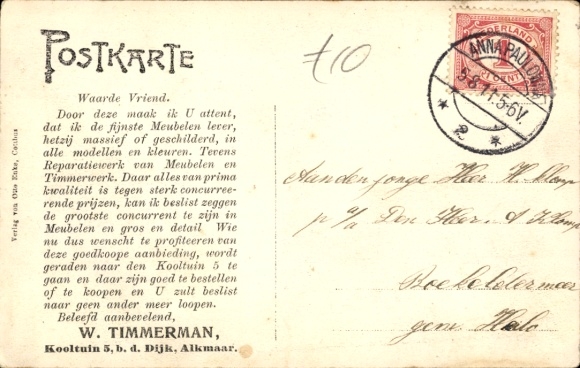 POSTKARTE
Waarde Vriend.
Door deze maak ik U attent,
dat ik de fijnste Meubelen lever,
hetzij massief of geschilderd, in
alle modellen en kleuren. Tevens
Reparatiewerk van Meubelen en
Timmerwerk. Daar alles van prima
kwaliteit is tegen sterk concurree-
rende prijzen, kan ik beslist zeggen
de grootste concurrent te zijn in
Meubelen en gros en detail Wie
nu dus wenscht te profiteeren van
deze goedkoope aanbieding, wordt
geraden naar den Kooltuin 5 te
gaan en daar zijn goed te bestellen
of te koopen en U zult beslist
naar geen ander meer loopen.
Beleefd aanbevelend,
W. TIMMERMAN,
Kooltuin 5, b. d. Dijk, Alkmaar.
Verlag von Otto
NEDERLAND
1
CENT
ANNA PAULOWNA
5-8.11.5-6V.
2
Aan den jonge Heer H. Klomp
p/a Den Heer A Klomp
gem. Halo